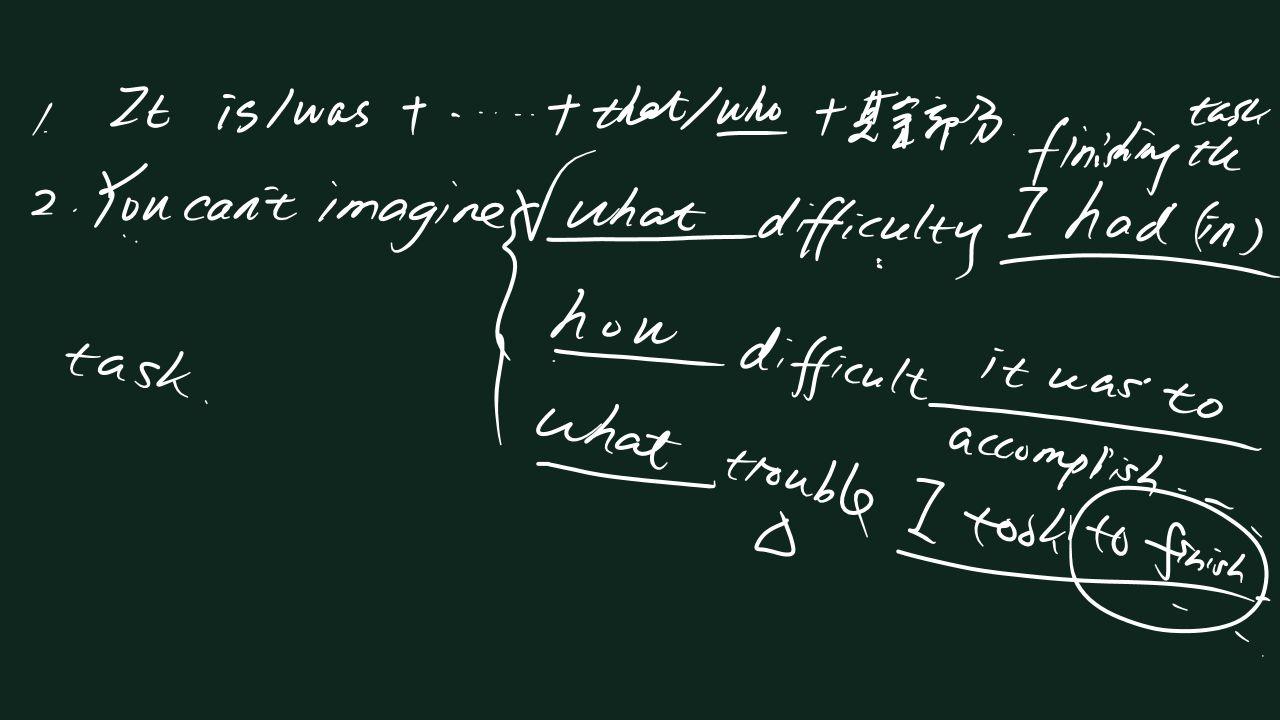 1. It is/was + ...... + that/who + 其余部分.
2. You can't imagine what difficulty I had (in) finishing the task
how difficult it was to accomplish...
what trouble I took to finish
task.